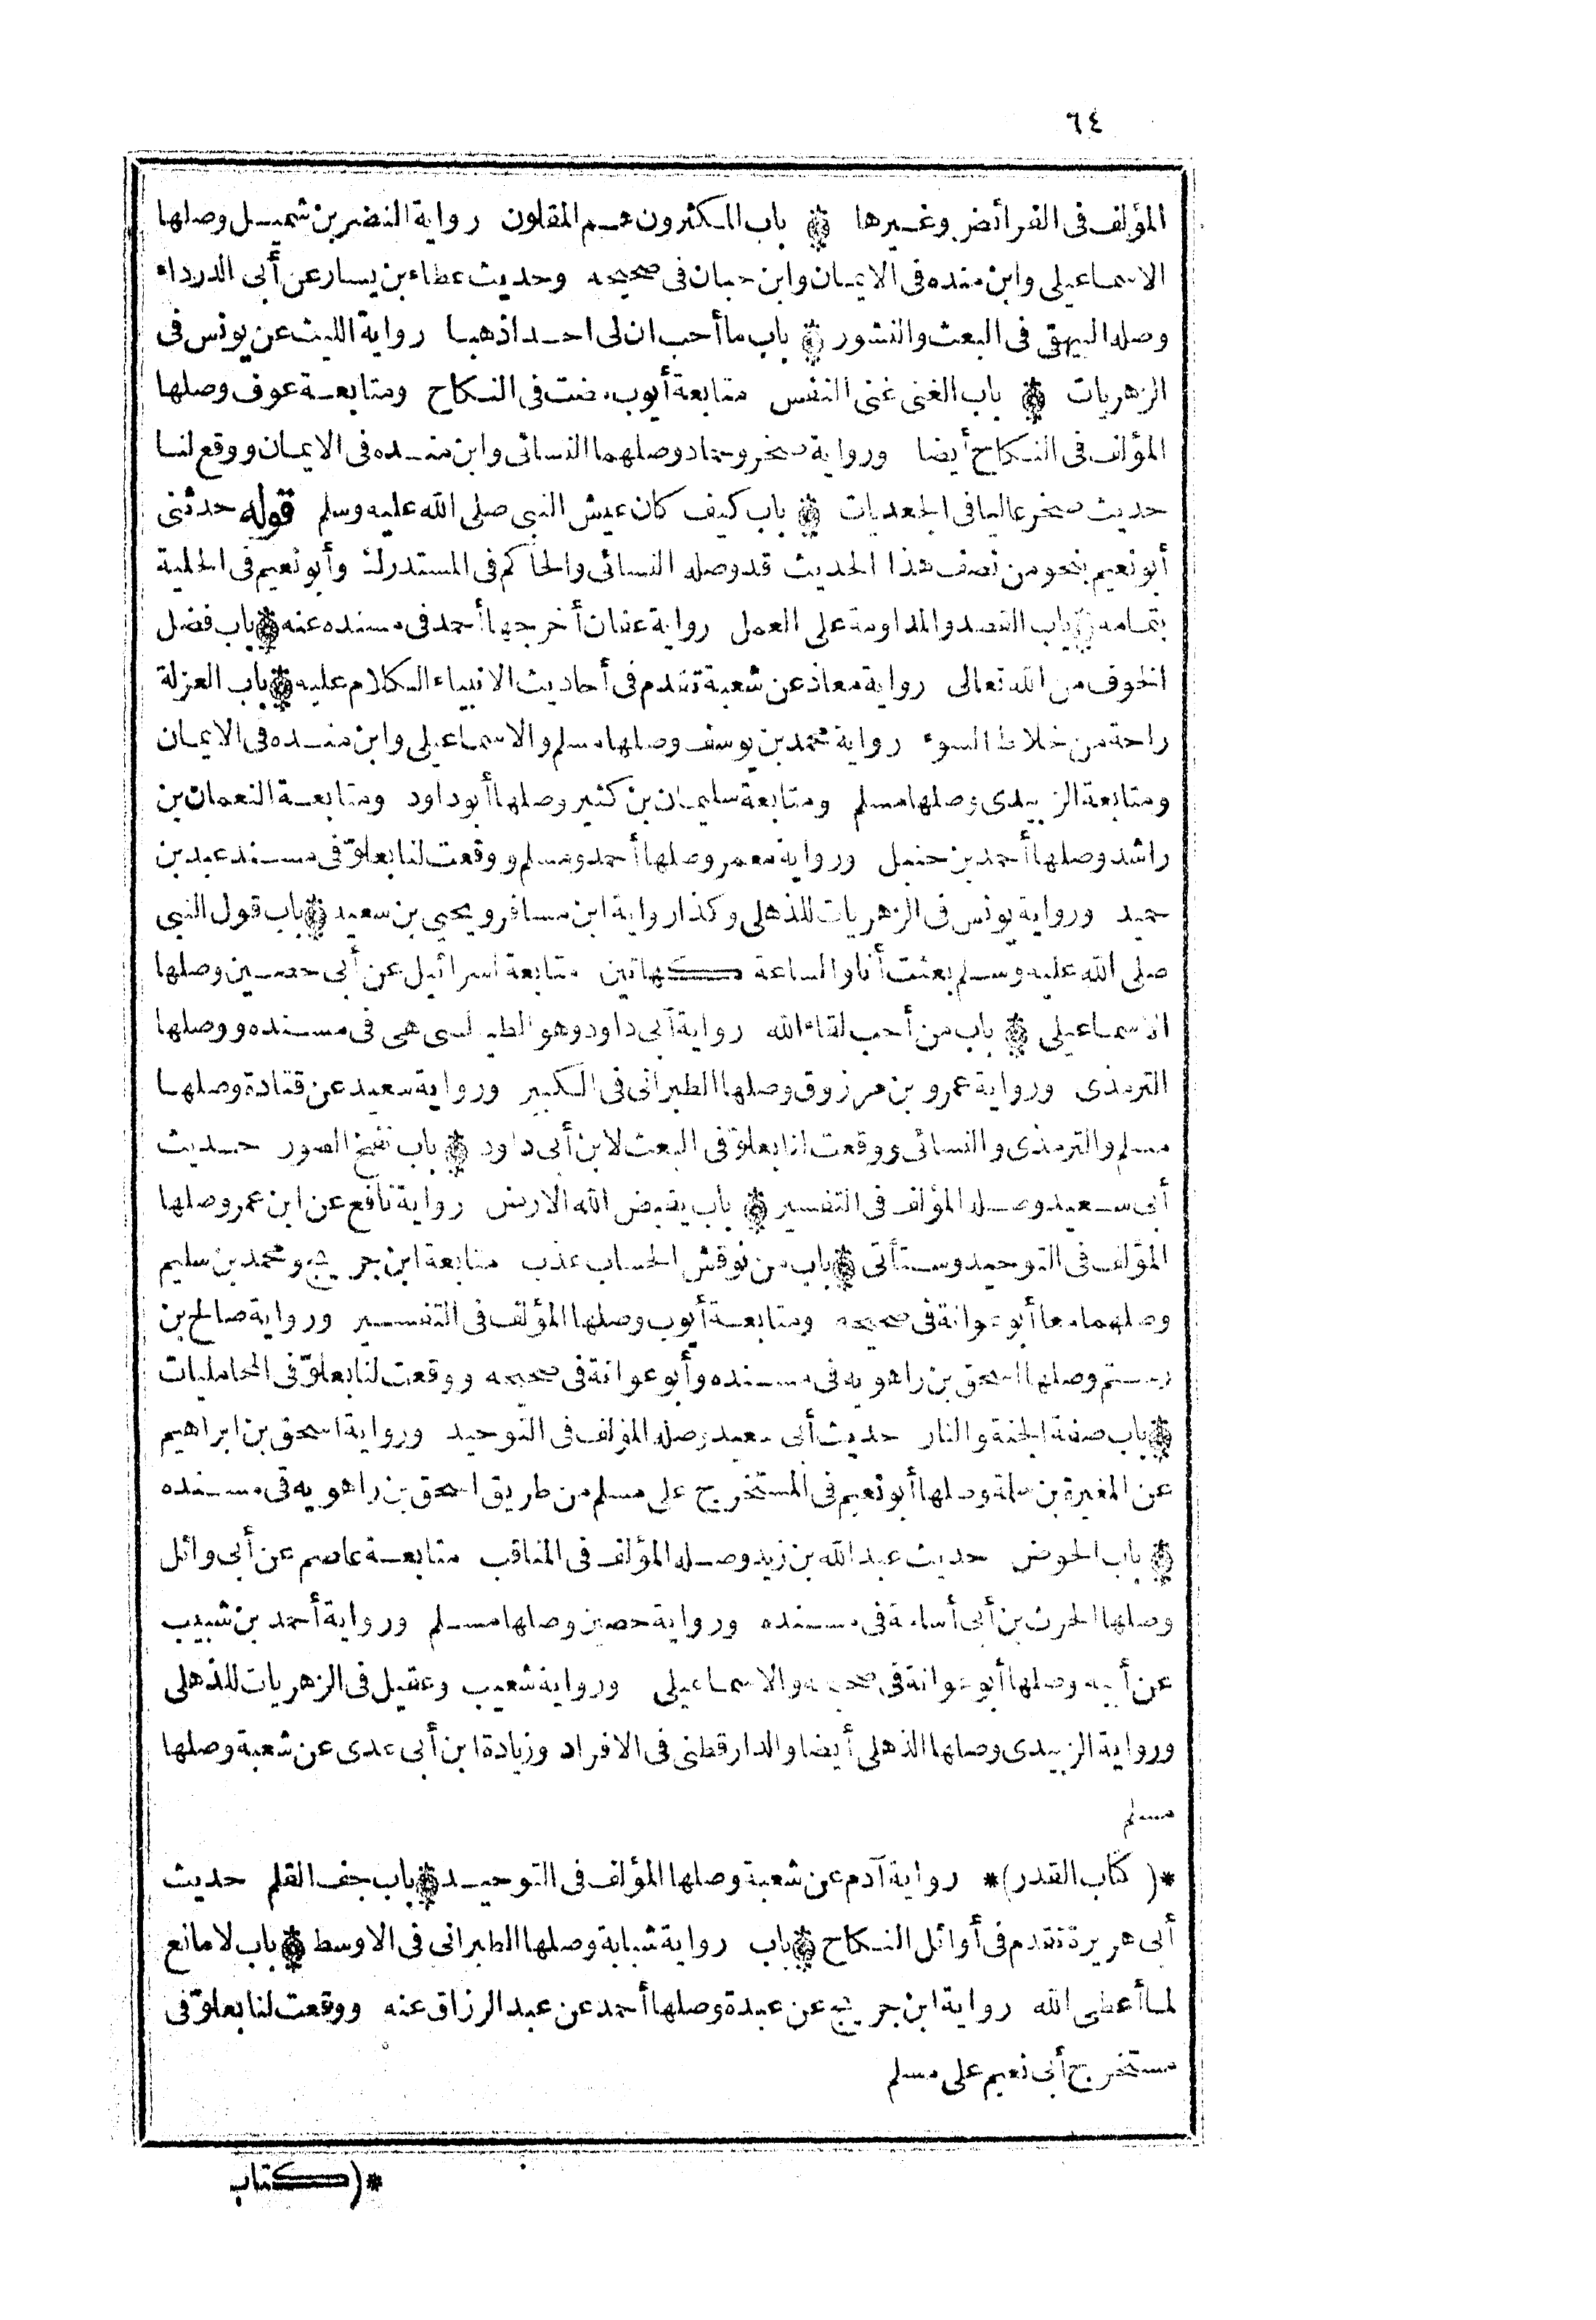 ٦٤
المؤلف فى الفرائض وغيرها ۞ باب المكثرون هم المقلون رواية النضر بن شميل وصلها
الاسماعيلى وابن منده فى الايمان وابن حبان فى صحيحه وحديث عطاء بن يسار عن أبى الدرداء
وصله البيهقى فى البعث والنشور ۞ باب ما أحب ان لى احدا ذهبا رواية الليث عن يونس فى
الزهريات ۞ باب الغنى غنى النفس متابعة أيوب مضت فى النكاح ومتابعة عوف وصلها
المؤلف فى النكاح أيضا ورواية صخر وحماد وصلهما النسائى وابن منده فى الايمان ووقع لنا
حديث صخر عاليا فى الجعديات ۞ باب كيف كان عيش النبى صلى الله عليه وسلم قوله حدثنى
أبو نعيم بنحو من نصف هذا الحديث قد وصله النسائى والحاكم فى المستدرك وأبو نعيم فى الحلية
بتمامه ۞ باب القصد والمداومة على العمل رواية عفان أخرجها أحمد فى مسنده عنه ۞ باب فضل
الخوف من الله تعالى رواية معاذ عن شعبة تقدم فى أحاديث الانبياء الكلام عليه ۞ باب العزلة
راحة من خلاط السوء رواية محمد بن يوسف وصلها مسلم والاسماعيلى وابن منده فى الايمان
ومتابعة الزبيدى وصلها مسلم ومتابعة سليمان بن كثير وصلها أبو داود ومتابعة النعمان بن
راشد وصلها أحمد بن حنبل ورواية معمر وصلها أحمد ومسلم ووقعت لنا بعلوّ فى مسند عبد بن
حميد ورواية يونس فى الزهريات للذهلى وكذا رواية ابن مسافر ويحيى بن سعيد ۞ باب قول النبى
صلى الله عليه وسلم بعثت أنا والساعة كهاتين متابعة اسرائيل عن أبى حصين وصلها
الاسماعيلى ۞ باب من أحب لقاء الله رواية أبى داود وهو الطيالسى هى فى مسنده ووصلها
الترمذى ورواية عمرو بن مرزوق وصلها الطبرانى فى الكبير ورواية سعيد عن قتادة وصلها
مسلم والترمذى والنسائى ووقعت لنا بعلوّ فى البعث لابن أبى داود ۞ باب نفخ الصور حديث
أبى سعيد وصله المؤلف فى التفسير ۞ باب يقبض الله الارض رواية نافع عن ابن عمر وصلها
المؤلف فى التوحيد وستأتى ۞ باب من نوقش الحساب عذب متابعة ابن جريج ومحمد بن سليم
وصلهما معا أبو عوانة فى صحيحه ومتابعة أيوب وصلها المؤلف فى التفسير ورواية صالح بن
رستم وصلها اسحق بن راهويه فى مسنده وأبو عوانة فى صحيحه ووقعت لنا بعلوّ فى المحامليات
۞ باب صفة الجنة والنار حديث أبى سعيد وصله المؤلف فى التوحيد ورواية اسحق بن ابراهيم
عن المغيرة بن سلمة وصلها أبو نعيم فى المستخرج على مسلم من طريق اسحق بن راهويه فى مسنده
۞ باب الحوض حديث عبد الله بن زيد وصله المؤلف فى المناقب متابعة عاصم عن أبى وائل
وصلها الحرث بن أبى أسامة فى مسنده ورواية حصين وصلها مسلم ورواية أحمد بن شبيب
عن أبيه وصلها أبو عوانة فى صحيحه والاسماعيلى ورواية شعيب وعقيل فى الزهريات للذهلى
ورواية الزبيدى وصلها الذهلى أيضا والدارقطنى فى الافراد وزيادة ابن أبى عدى عن شعبة وصلها
مسلم
*(كتاب القدر)* رواية آدم عن شعبة وصلها المؤلف فى التوحيد ۞ باب جف القلم حديث
أبى هريرة تقدم فى أوائل النكاح ۞ باب رواية شبابة وصلها الطبرانى فى الاوسط ۞ باب لا مانع
لما أعطى الله رواية ابن جريج عن عبدة وصلها أحمد عن عبد الرزاق عنه ووقعت لنا بعلوّ فى
مستخرج أبى نعيم على مسلم
*(كتاب